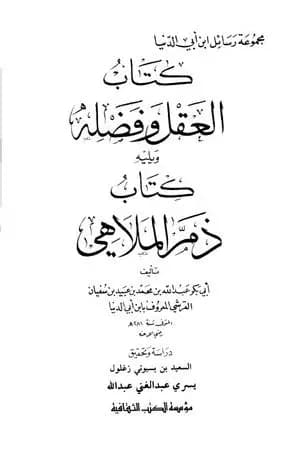 مجموعة رسائل ابن أبي الدنيا
كتاب
العقل وفضله
ويليه
كتاب
ذم الملاهي
تأليف
أبي بكر عبد الله بن محمد بن عبيد بن سفيان
القرشي المعروف بابن أبي الدنيا
المتوفى سنة ٢٨١هـ
دراسة وتحقيق
السعيد بن بسيوني زغلول
يسري عبدالغني عبدالله
مؤسسة الكتب الثقافية